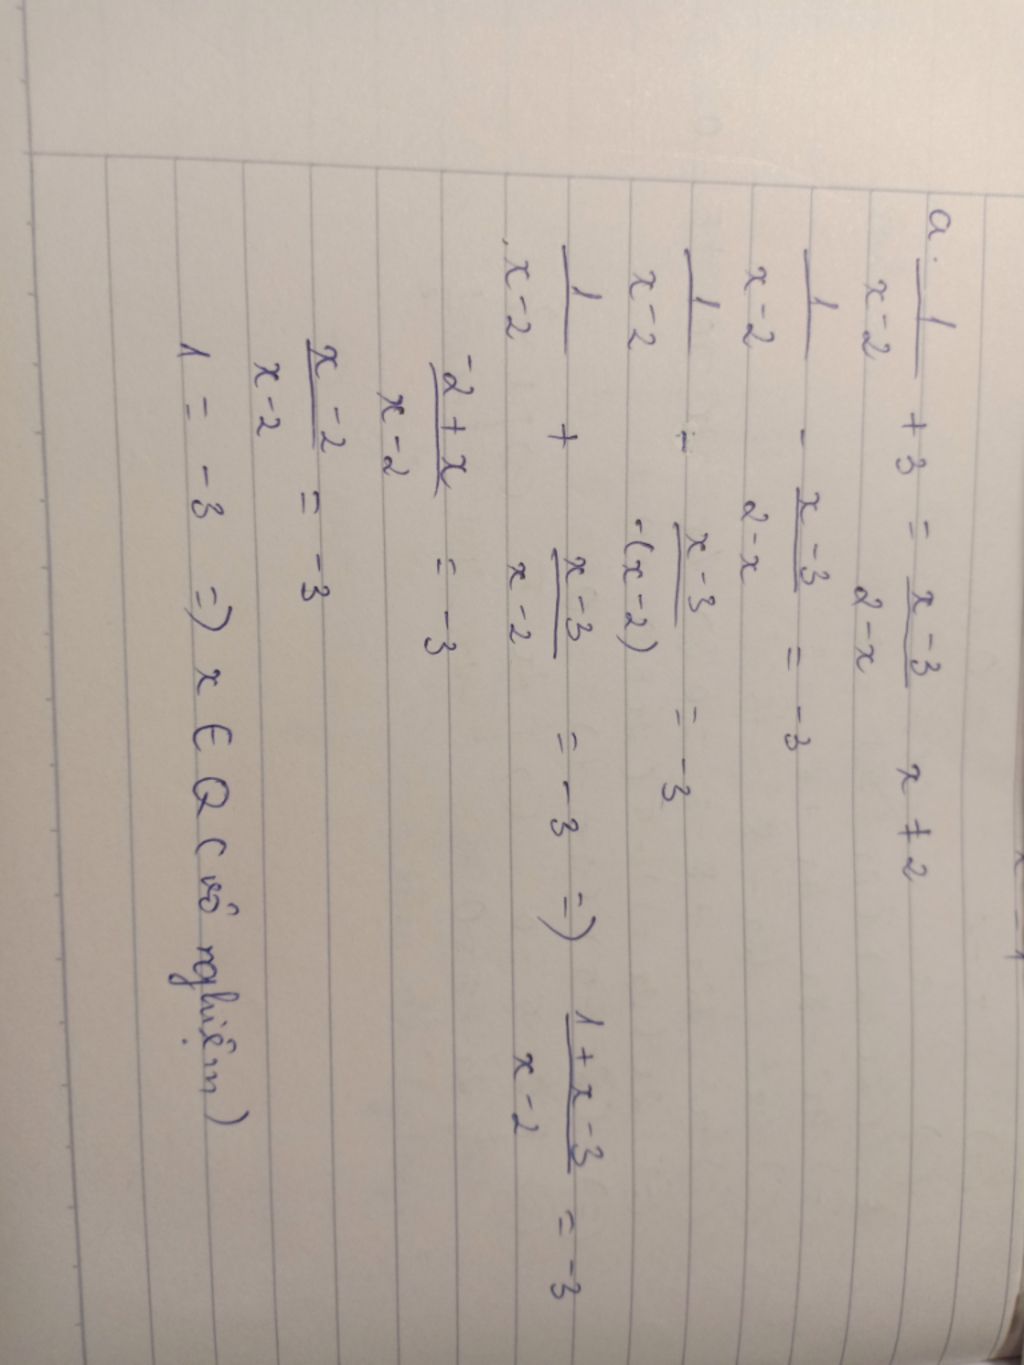 a. 1/(x-2) + 3 = (x-3)/(2-x) x ≠ 2
1/(x-2) - (x-3)/(2-x) = -3
1/(x-2) - (x-3)/(-(x-2)) = -3
1/(x-2) + (x-3)/(x-2) = -3 =) (1+x-3)/(x-2) = -3
(-2+x)/(x-2) = -3
(x-2)/(x-2) = -3
1 = -3 =) x ∈ Q (vô nghiệm)